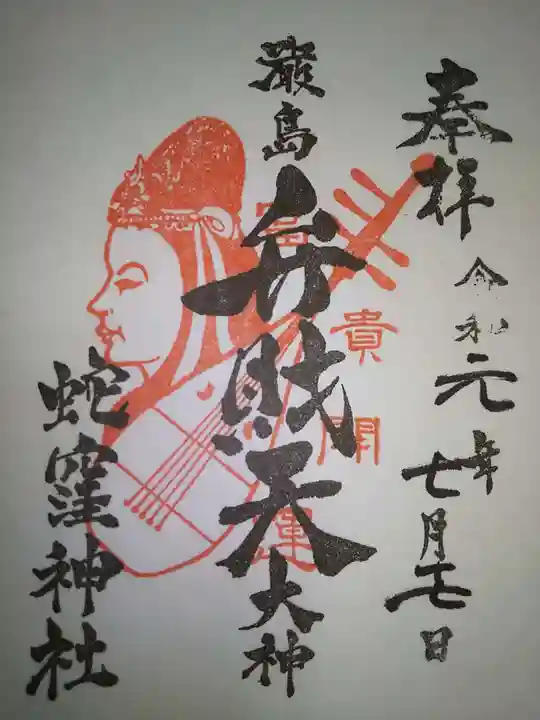 奉拝 令和元年七月十七日
厳島 弁財天大神
富貴開運
蛇窪神社